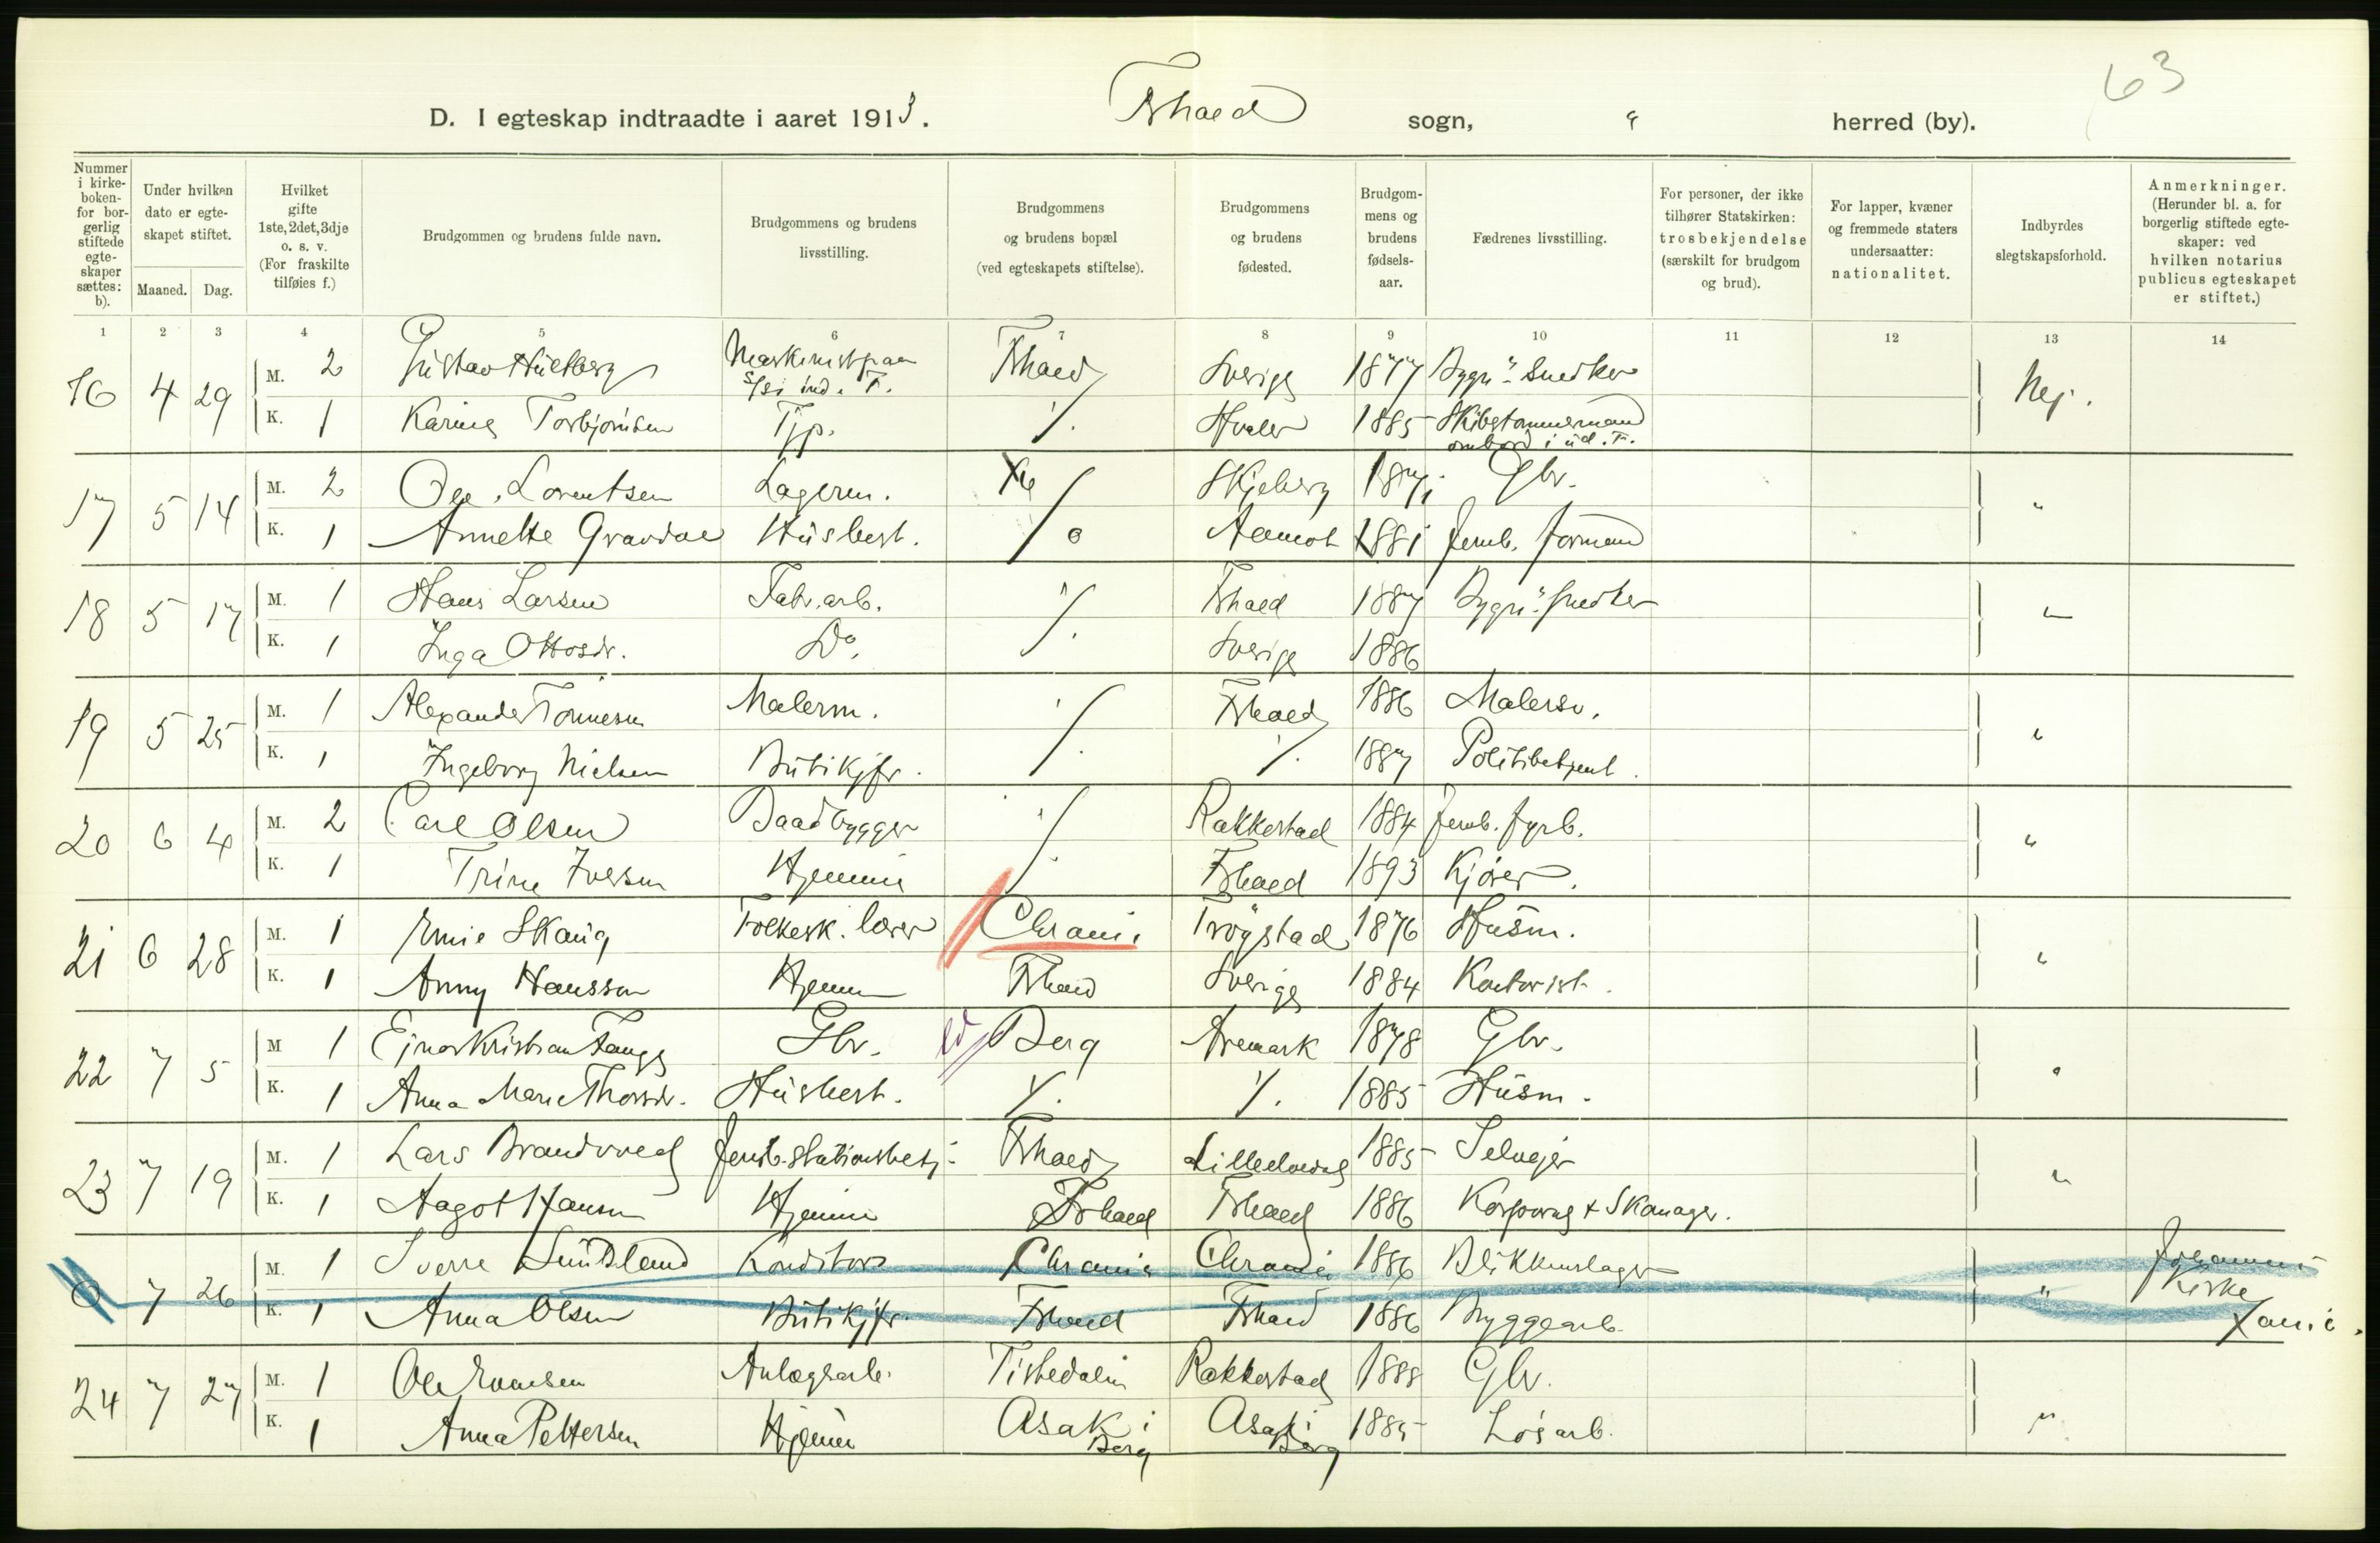 63
D. I egteskap indtraadte i aaret 1913. Fhald sogn, herred (by).
Nummer i kirke-boken- for bor-gerlig stiftede egte-skaper sættes: b).
Under hvilken dato er egte-skapet stiftet.
Maaned. Dag.
Hvilket gifte 1ste, 2det, 3dje o. s. v. (For fraskilte tilføies f.)
Brudgommen og brudens fulde navn.
Brudgommens og brudens livsstilling.
Brudgommens og brudens bopæl (ved egteskapets stiftelse).
Brudgommens og brudens fødested.
Brudgom-mens og brudens fødsels-aar.
Fædrenes livsstilling.
For personer, der ikke tilhører Statskirken: trosbekjendelse (særskilt for brudgom og brud).
For lapper, kvæner og fremmede staters undersaatter: nationalitet.
Indbyrdes slegtskapsforhold.
Anmerkninger. (Herunder bl. a. for borgerlig stiftede egte-skaper: ved hvilken notarius publicus egteskapet er stiftet.)
1 2 3 4 5 6 7 8 9 10 11 12 13 14
16 4 29 M. 2 Gustav Hultberg Maskinist paa S/S i ind. F. Fhald Sverige 1877 Bygn. Snedker Nej.
K. 1 Karine Torbjørnsen Tjp. ⁒ Hvaler 1885 Skibstømmermand ombord i ud. F.
17 5 14 M. 2 Ole Lorentsen Lagerm. Skjeberg 1871 Gbr. "
K. 1 Annette Gravdal Husbest. ⁒ Aamot 1881 Jernb. formand
18 5 17 M. 1 Hans Larsen Fabr. arb. ⁒ Fhald 1887 Bygn. Snedker "
K. 1 Inga Ottosdr. Do. Sverige 1886
19 5 25 M. 1 Alexander Tønnesen Malerm. ⁒ Fhald 1886 Malersv. "
K. 1 Ingeborg Nielsen Butikjfr. ⁒ 1887 Politibetjent.
20 6 4 M. 2 Carl Olsen Baadbygger ⁒ Rakkestad 1884 Jernb. fyrb. "
K. 1 Trine Iversen Hjemme Fhald 1893 Kjører.
21 6 28 M. 1 Skaug Folkesk. lærer Chrania Trøgstad 1876 Husm. "
K. 1 Anny Hansson Hjemme Fhald Sverige 1884 Kontorist.
22 7 5 M 1 Ejnar Kristian Tange Gbr. Berg Aremark 1878 Gbr. "
K. 1 Anna Marie Thorsdr. Husbest. ⁒ ⁒ 1885 Husm.
23 7 19 M. 1 Lars Brandvold Jernb. stationsbetj. Fhald Lilleelvedal 1885 Selvejer "
K. 1 Aagot Hansen Hjemme Fhald Fhald 1886 Korporal & Skomager.
0 7 26 M. 1 Sverre Sundsland Konditor Chrania Chrania 1886 Blikkenslager " Johannes
K. 1 Anna Olsen Butikjfr. Fhald Fhald 1886 Byggearb. Kirke Xania.
24 7 27 M. 1 Ole Evensen Anlægsarb. Tistedalen Rakkestad 1888 Gbr. "
K. 1 Anna Pettersen Hjemme Asak i Berg Asak i Berg 1885 Løsarb.